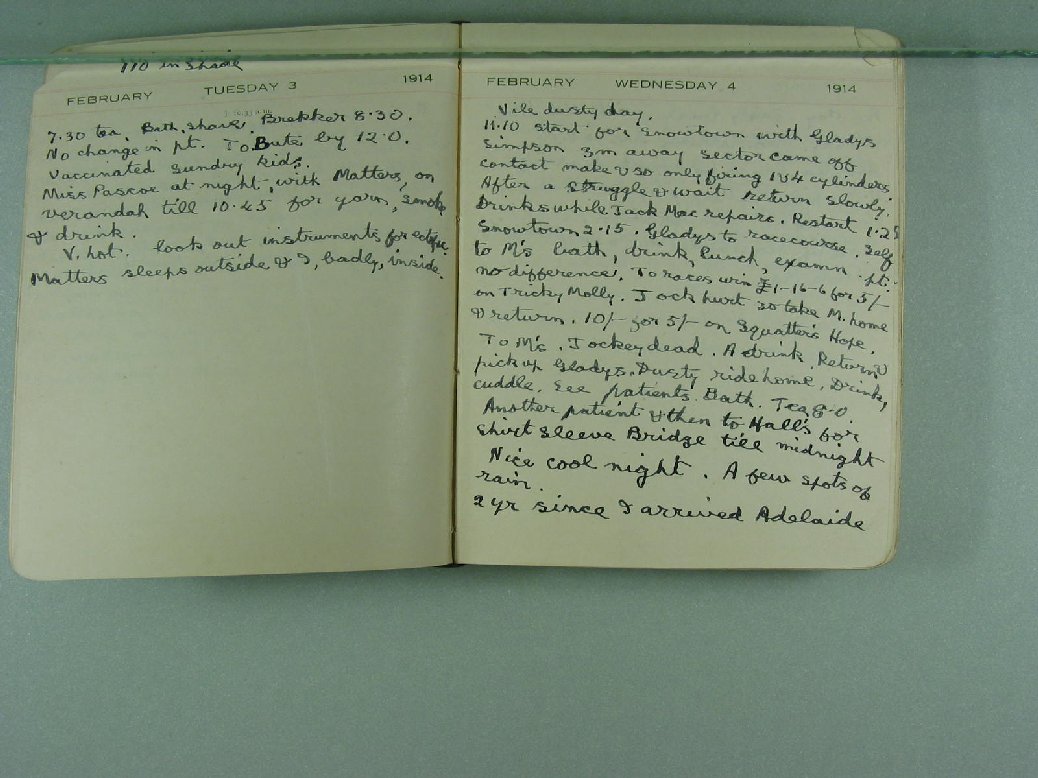 110 in shade
FEBRUARY TUESDAY 3 1914
7.30 tea. Bath, shave. Brekker 8.30.
No change in pt. To Bute by 12.0.
Vaccinated sundry kids.
Miss Pascoe at night, with Matters, on
verandah till 10.45 for yarn, smoke
& drink.
V. hot. look out instruments for
Matters sleeps outside & I, badly, inside.
FEBRUARY WEDNESDAY 4 1914
Vile dusty day.
11.10 start for Snowtown with Gladys
Simpson 3m away sector came off
contact make & so only firing 1 & 4 cylinders
After a struggle & wait return slowly.
Drinks while Jack Mac repairs. Restart 1.25
Snowtown 2.15. Gladys to racecourse, self
to M's bath, drink, lunch, examn. pt.
no difference. To races win £1-16-6 for 5/-
on Tricky Molly. Jock hurt so take M. home
& return. 10/- for 5/- on Squatter's Hope.
To M's. Jockey dead. A drink. Return &
pick up Gladys. Dusty ride home. Drink,
cuddle. See patients. Bath. Tea 8.0.
Another patient & then to Hall's for
Shirt sleeve Bridge till midnight
Nice cool night. A few spots of
rain.
2 yr since I arrived Adelaide